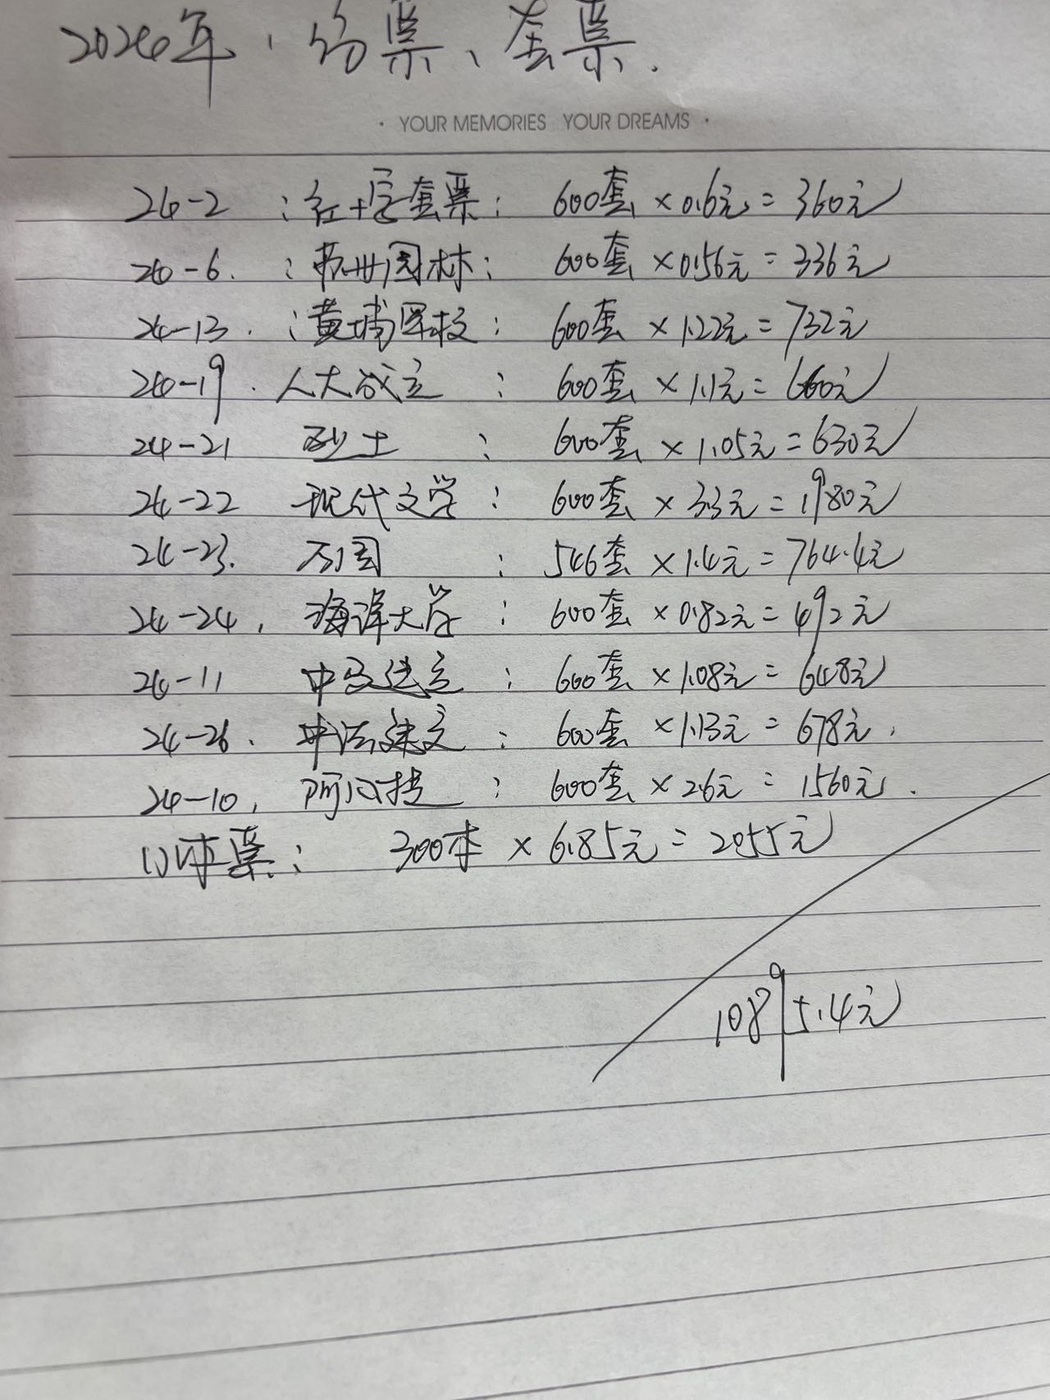 2024年、的票、套票.
· YOUR MEMORIES YOUR DREAMS ·
24-2 : 红十字套票: 600套×0.6元=360元
24-6. : 苏州园林: 600套×0.56元=336元
24-13. : 黄埔军校: 600套×1.22元=732元
24-19. 人大成立 : 600套×1.1元=660元
24-21 砂土 : 600套×1.05元=630元
24-22 现代文学: 600套×3.3元=1980元
24-23. 万国 : 546套×1.4元=764.4元
24-24. 海洋大学: 600套×0.82元=492元
24-11 中马建交: 600套×1.08元=648元
24-26. 中法建交: 600套×1.13元=678元.
24-10. 阿凡提 : 600套×2.6元=1560元.
小本票: 300本×6.85元=2055元
10895.4元